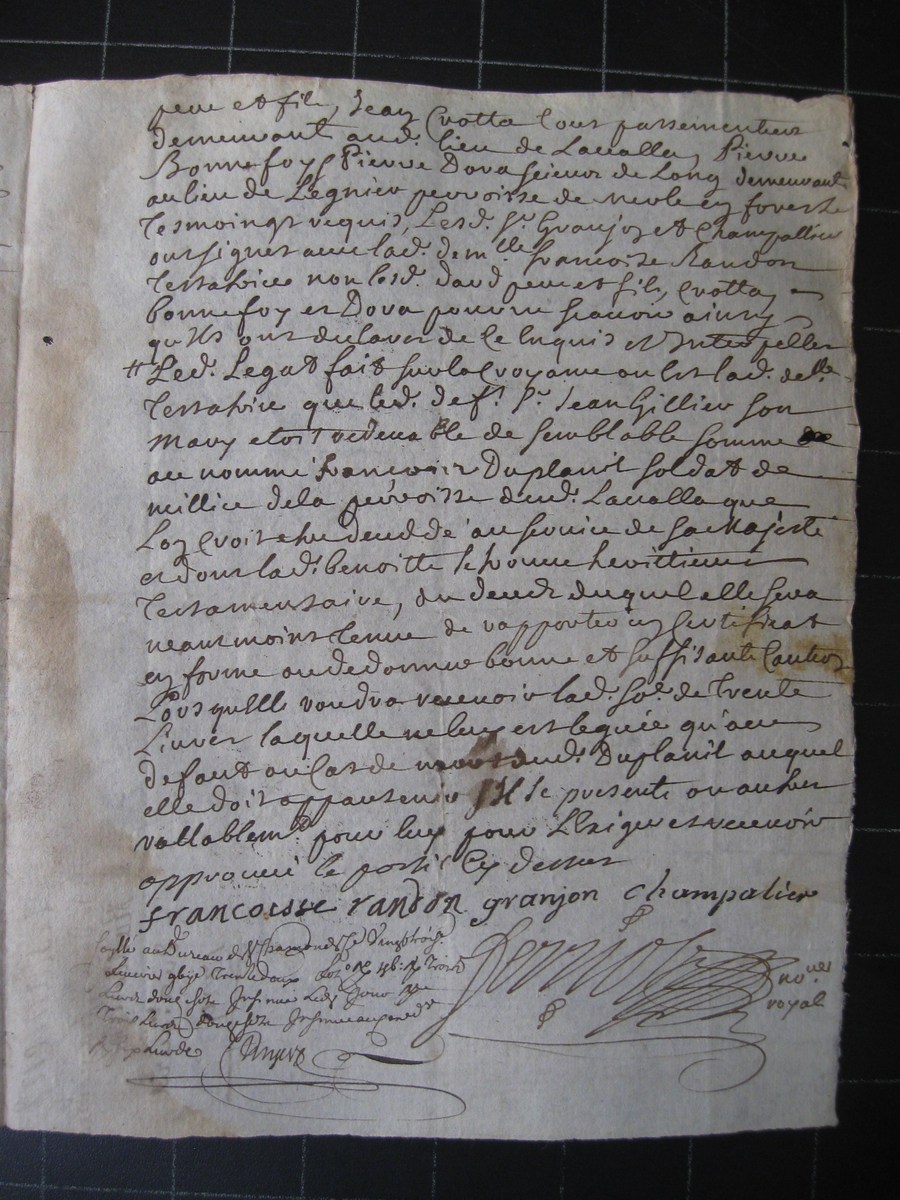 pere et fils, Jean Crotta tous passementiers
demeurant aud. lieu de Lavalla, Pierre
Bonnefoy, Pierre Dova scieurs de Long demeurants
au lieu de Legnier parroisse de en forest
Tesmoingts requis, Lesd. Sr. Granjon et Champallier
ont signes avec lad. demlle. francoise Randon
Testatrice non lesd. daud pere et fils, Crotta
bonnefoy et Dova pour ne scavoir ainsy
qu'ils ont declarer de ce enquis et Interpellés
# Led. Legat fait sur la croyance ou est lad. delle.
Testatrice que led. deft. Sr. Jean Gillier son
Mary etoit redevable de semblable somme
au nommé francois Duplanil soldat de
millice de la parroisse dud. Lavalla que
Lon croit etre decedé au service de sa Majesté
et dont lad. benoitte se trouve herittiere
Testamentaire, du deceds duquel elle sera
neantmoins tenue de rapporter un certificat
en forme ou de donner bonne et suffisante Caution
Lors qu'elle voudra recevoir lad. so. de Trente
Livres laquelle ne luy est leguée qu'au
defaut ou cas de mort dud. Duplanil auquel
elle doit appartenir s'Il se presente ou autres
vallablemt. pour luy pour L'Exiger et recevoir
approuvé le postil cy dessus
francoisse randon granjon champalier
au Bureau de St Chamond
Trente deux Trois
Livres douze
Trois Livres
no.res
royal